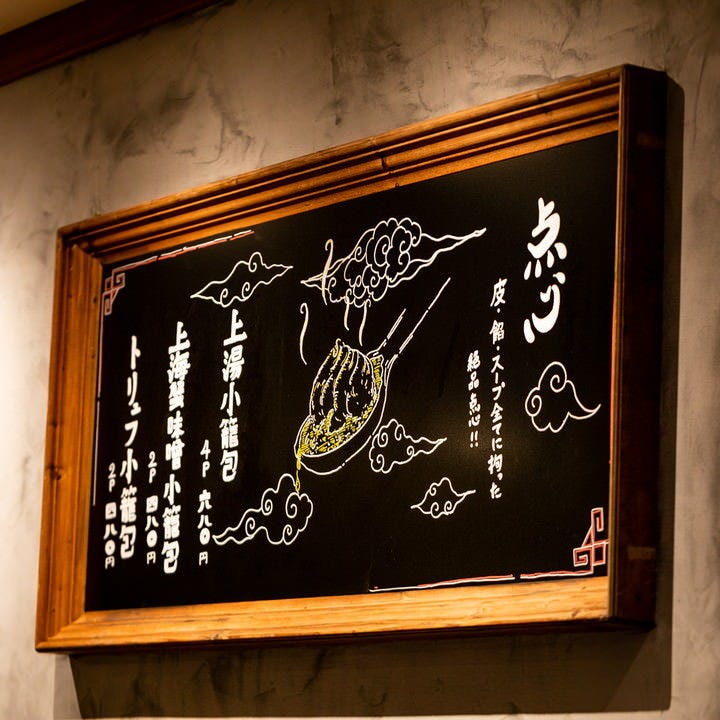 点心
皮・餡・スープ全てに拘った
絶品点心!!
上湯小籠包
4P 六八〇円
上海蟹味噌小籠包
2P 四八〇円
トリュフ小籠包
2P 四八〇円